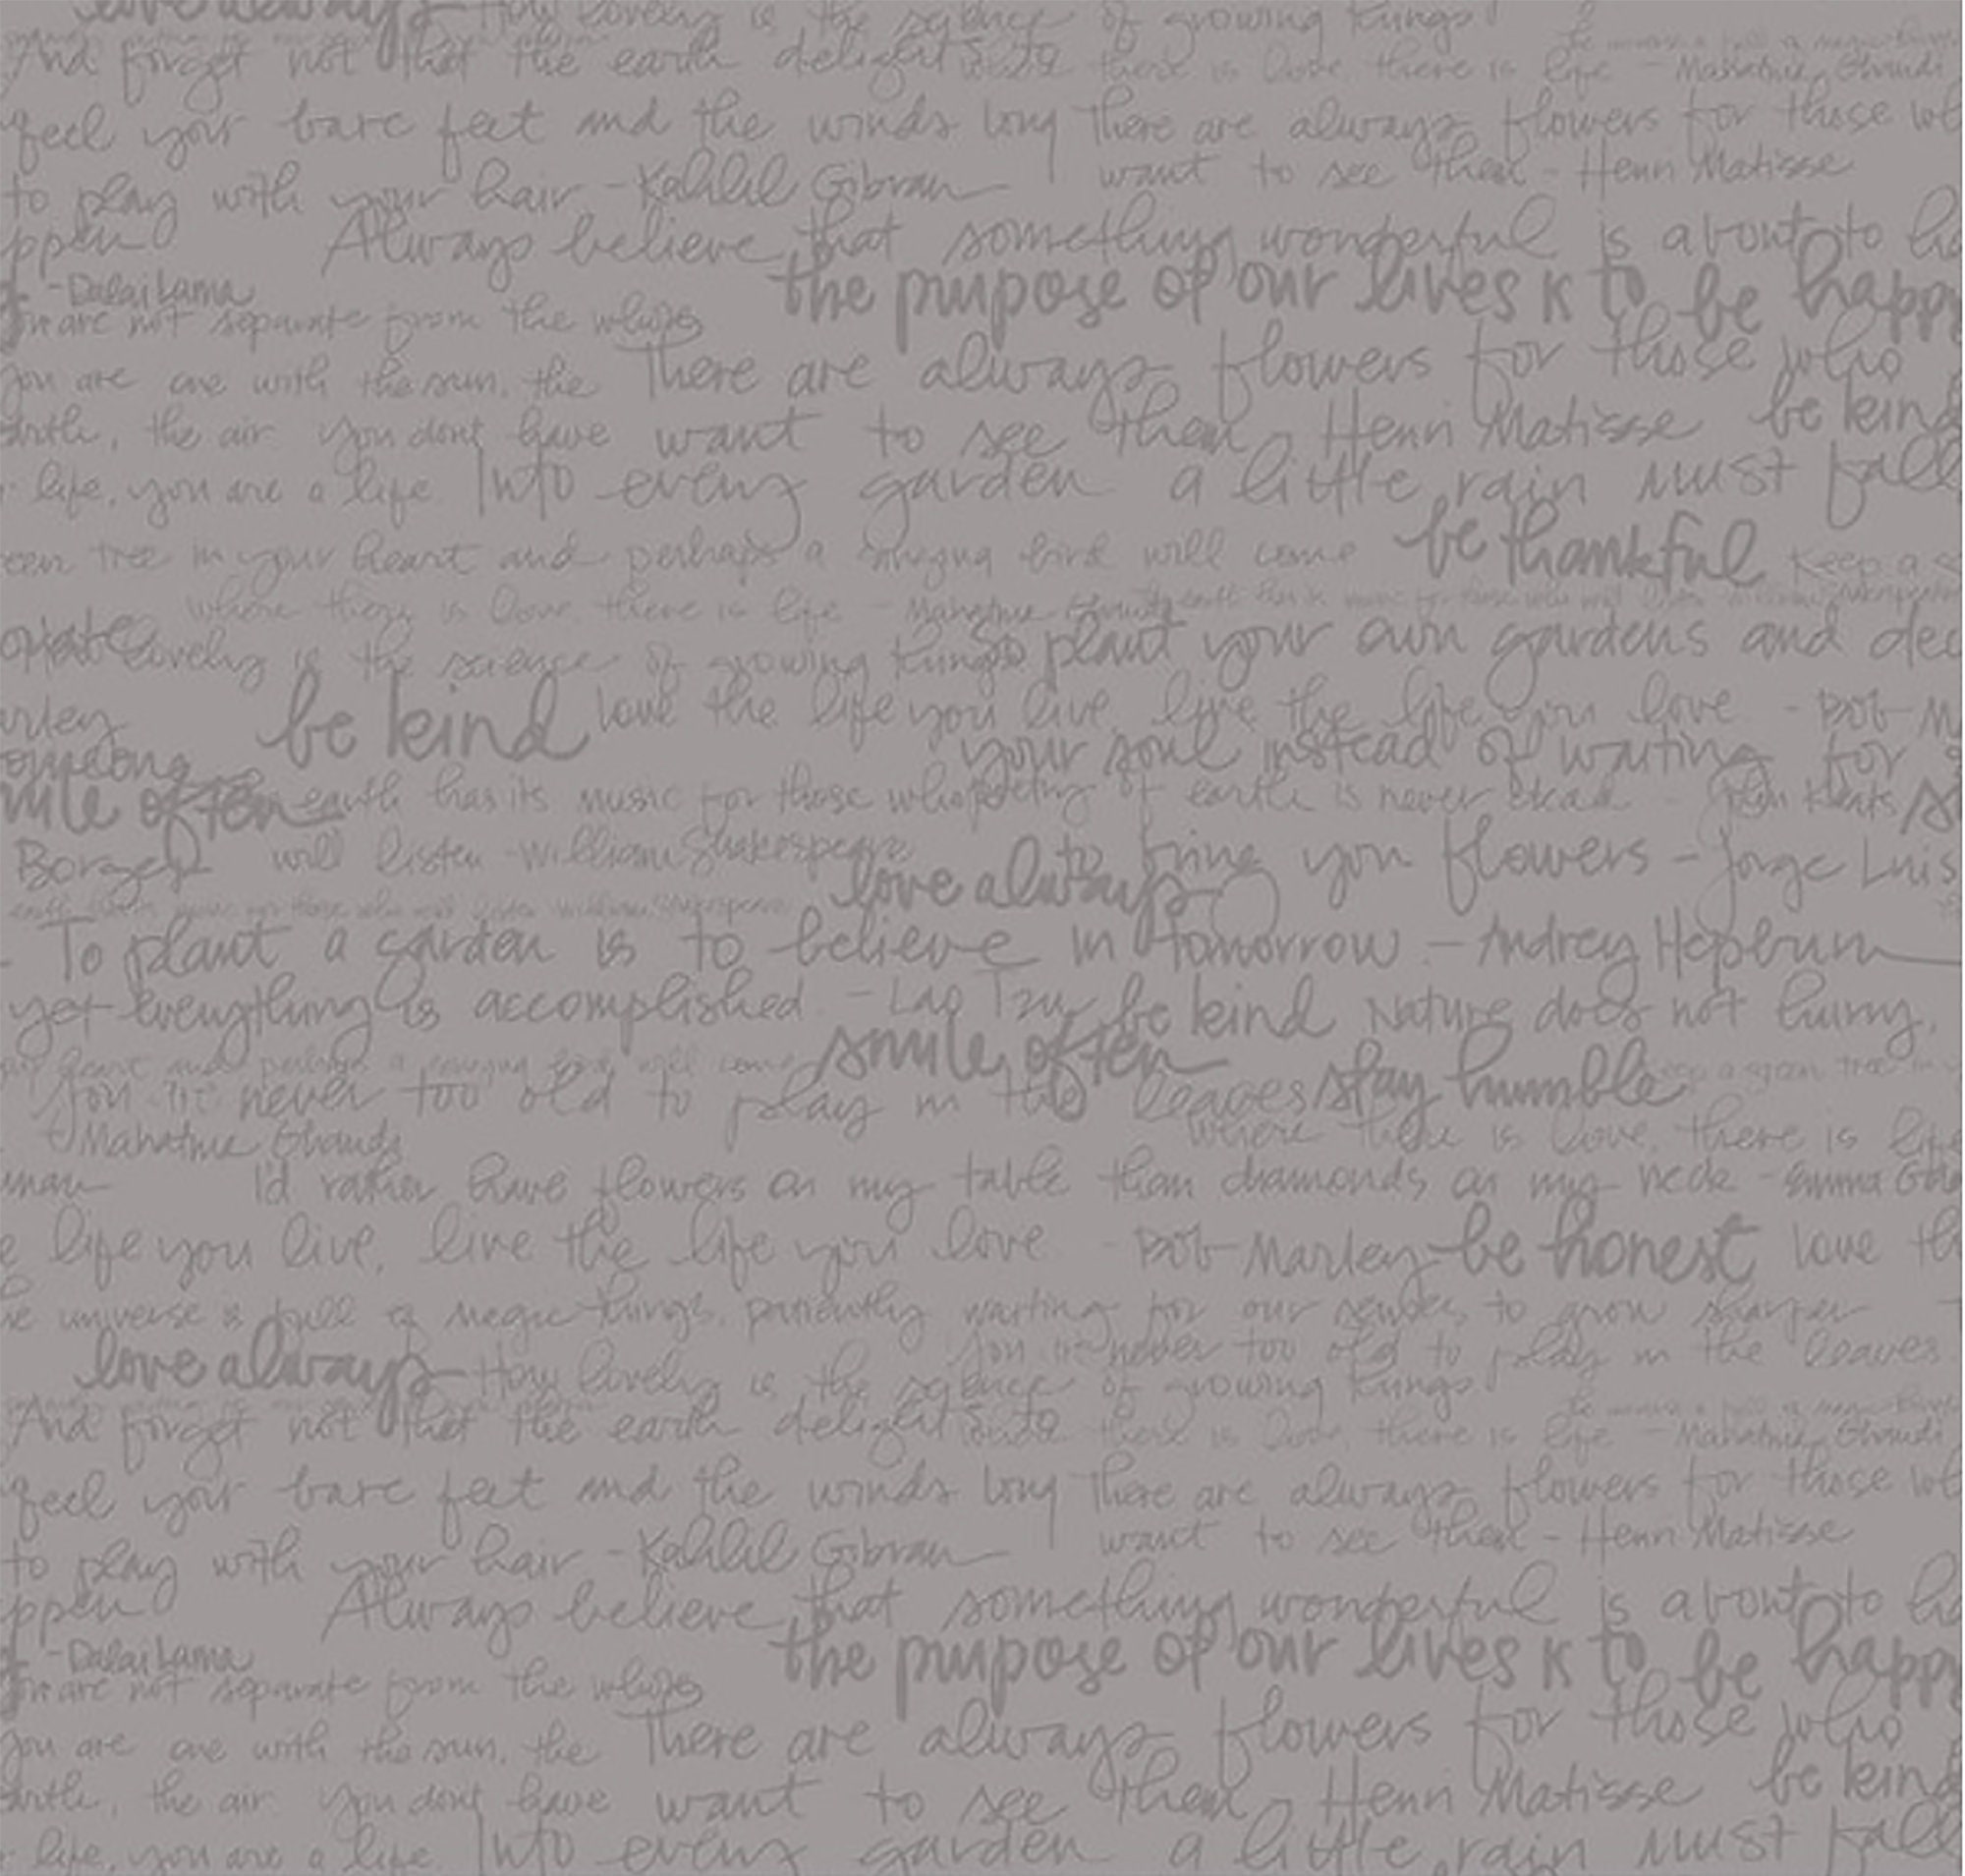 love always How lovely is the science of growing things!
And forget not that the earth delights to there is love, there is life - Mahatma Ghandi
feel your bare feet and the winds long There are always flowers for those
to play with your hair - Kahlil Gibran want to see them - Henri Matisse
ppen Always believe that something wonderful is about to ha
- Dalai Lama the purpose of our lives is to be happy
you are not separate from the whole
you are one with the sun, the There are always flowers for those who
earth, the air. You dont have want to see them - Henri Matisse be kind
life, you are a life Into every garden a little rain must fall
een tree in your heart and perhaps a singing bird will come be thankful Keep a
where there is love, there is life - Mahatma Ghandi
lovely is the science of growing things So plant your own gardens and dec
arley be kind love the life you live, live the life you love - Bob M
omeone your soul instead of waiting for s
mile often earth has its music for those who poetry of earth is never dead - John Keats
Borges will listen - William Shakespeare to bring you flowers - Jorge Luis
love always
earth has its music for those who will listen William Shakespeare
- To plant a garden is to believe in tomorrow - Audrey Hepburn
yet everything is accomplished - Lao Tzu be kind Nature does not hurry,
heart and perhaps a singing bird will come smile often keep a green tree in
You're never too old to play in the leaves stay humble
Mahatma Ghandi where there is love, there is life
man I'd rather have flowers on my table than diamonds on my neck - Emma Go
e life you live, live the life you love - Bob Marley be honest love th
he universe is full of magic things, patiently waiting for our senses to grow sharper
You're never too old to play in the leaves
love always How lovely is the science of growing things!
And forget not that the earth delights to there is love, there is life - Mahatma Ghandi
feel your bare feet and the winds long There are always flowers for those
to play with your hair - Kahlil Gibran want to see them - Henri Matisse
ppen Always believe that something wonderful is about to ha
- Dalai Lama the purpose of our lives is to be happy
you are not separate from the whole
you are one with the sun, the There are always flowers for those who
earth, the air. You dont have want to see them - Henri Matisse be kind
life, you are a life Into every garden a little rain must fall